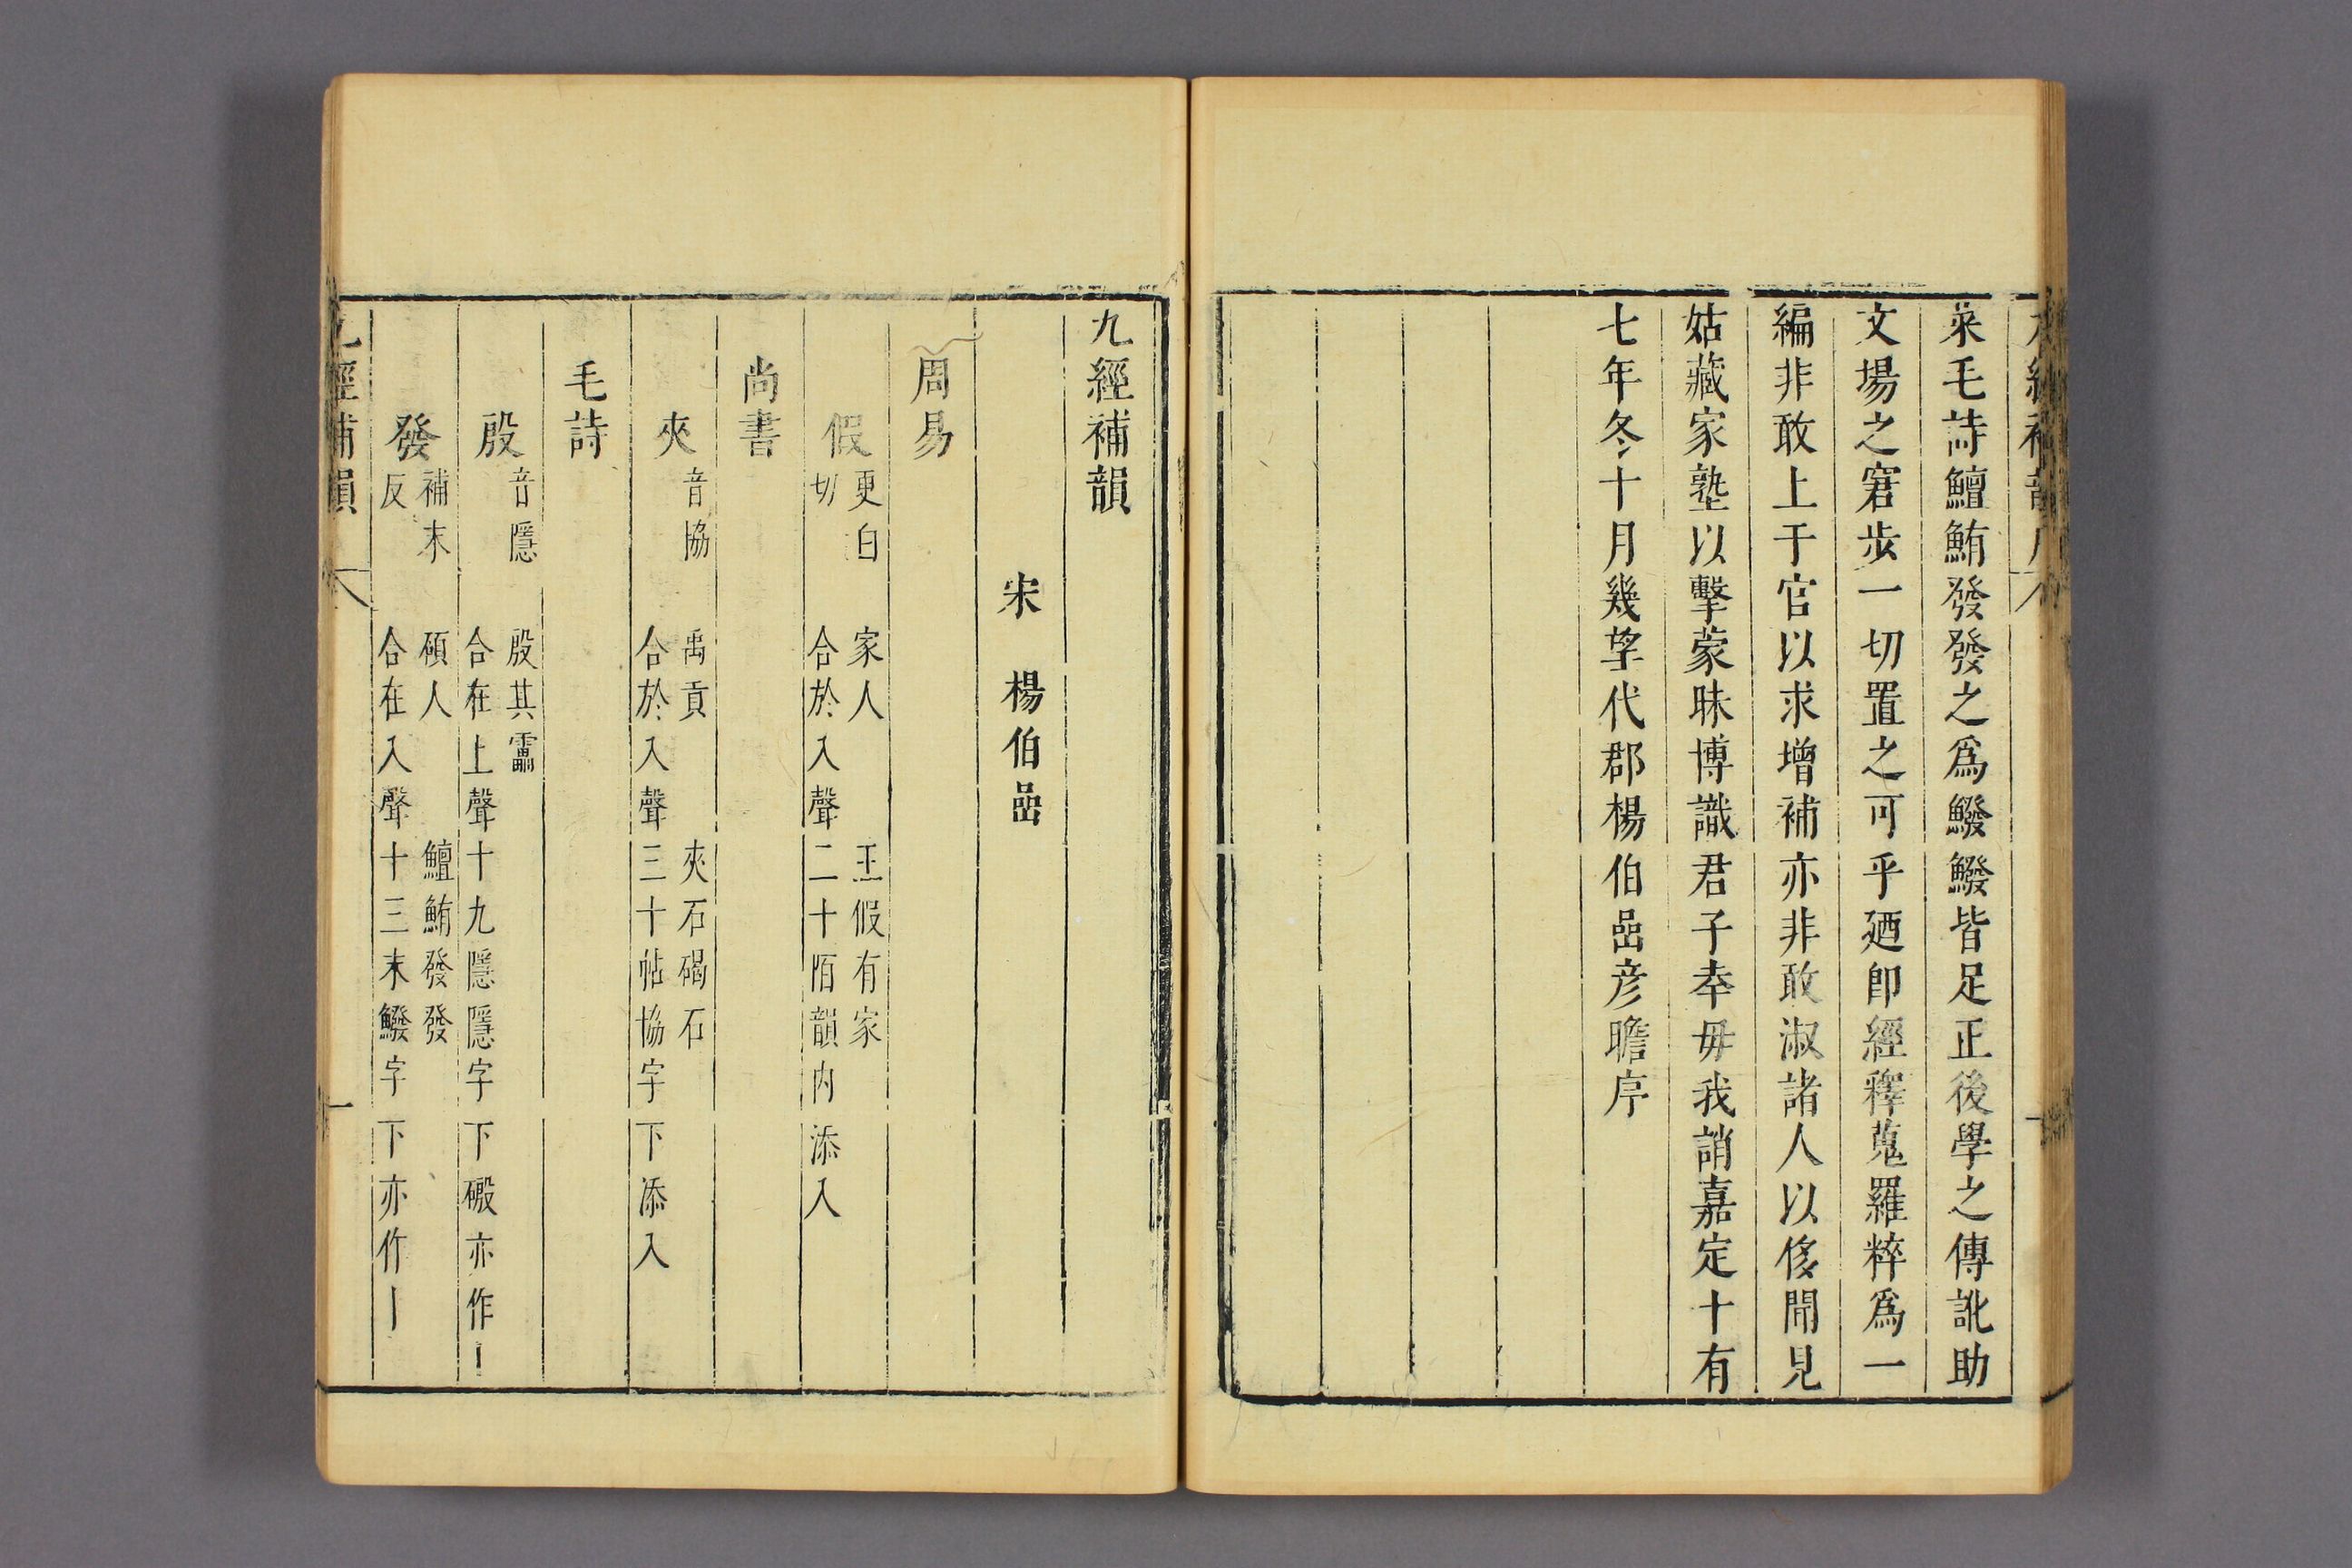 九經補韻序
菜毛詩鱣鮪發發之爲鱍鱍皆足正後學之傳訛助
文場之窘步一切置之可乎廼卽經釋蒐羅粹爲一
編非敢上于官以求增補亦非敢淑諸人以侈聞見
姑藏家塾以擊蒙昧博識君子幸毋我誚嘉定十有
七年冬十月幾望代郡楊伯嵒彦瞻序
九經補韻
宋 楊伯嵒
周易
假 更白切 家人 王假有家 合於入聲二十陌韻内添入
尚書
夾 音協 禹貢 夾石碣石 合於入聲三十帖協字下添入
毛詩
殷 音隱 殷其靁 合在上聲十九隱隱字下磤亦作丨
發 補末反 碩人 鱣鮪發發 合在入聲十三末鱍字下亦作丨
九經補韻 一